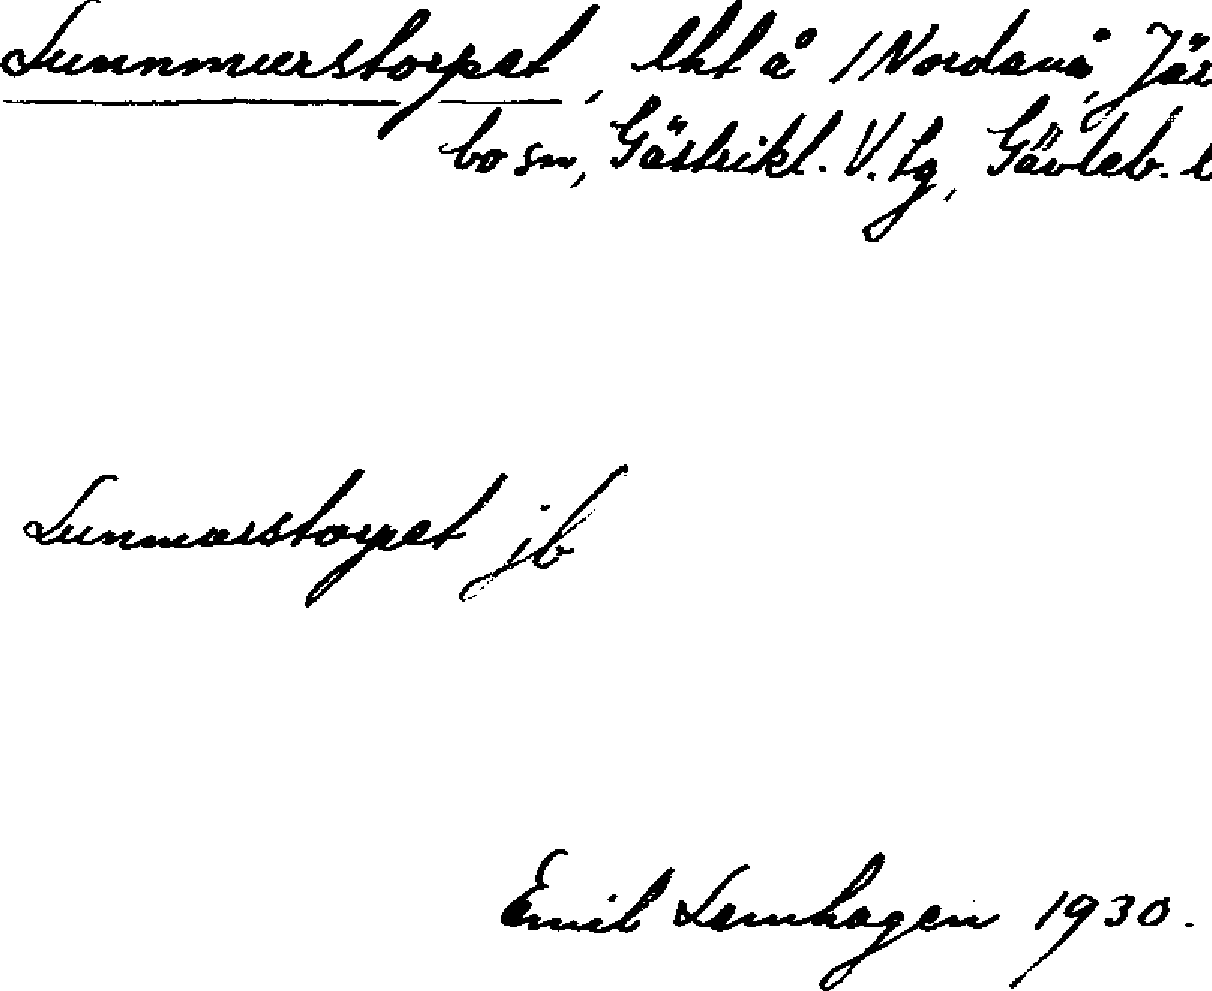 Lunnmurstorpet, lht å 1 Nordanå, Jär
bo sn, Gästrikl. V. tg, Gävleb. l
Lunmorstorpet jb
Emil Lamhagen 1930.